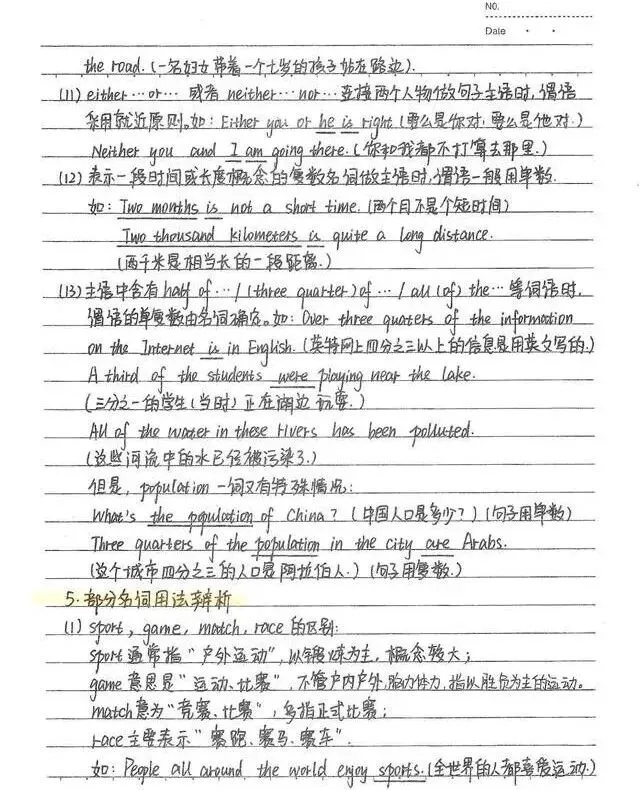 NO.
Date
the road. (一名妇女带着一个七岁的孩子站在路边).
(11) either…or… 或者 neither…nor… 连接两个人物做句子主语时,谓语
采用就近原则。如: Either you or he is right (要么是你对,要么是他对.)
Neither you and I am going there. (你和我都不打算去那里.)
(12) 表示一段时间或长度概念的复数名词做主语时,谓语一般用单数.
如: Two months is not a short time. (两个月不是个短时间)
Two thousand kilometers is quite a long distance.
(两千米是相当长的一段距离.)
(13) 主语中含有 half of…/ (three quarter) of…/ all (of) the… 等词语时,
谓语的单复数由名词确定。如: Over three quaters of the information
on the Internet is in English. (英特网上四分之三以上的信息是用英文写的.)
A third of the students were playing near the lake.
(三分之一的学生(当时)正在湖边玩耍.)
All of the water in these rivers has been polluted.
(这些河流中的水已经被污染了.)
但是, population 一词又有特殊情况:
What's the population of China? (中国人口是多少?) (句子用单数)
Three quarters of the population in the city are Arabs.
(这个城市四分之三的人口是阿拉伯人.) (句子用复数.)
5. 部分名词用法辨析
(1) sport, game, match, race 的区别:
sport 通常指“户外运动”,以锻炼为主,概念较大;
game 意思是“运动、比赛”,不管户内户外,脑力体力,指以胜负为主的运动。
match 意为“竞赛、比赛”,多指正式比赛;
race 主要表示“赛跑、赛马、赛车”.
如: People all around the world enjoy sports. (全世界的人都喜爱运动.)